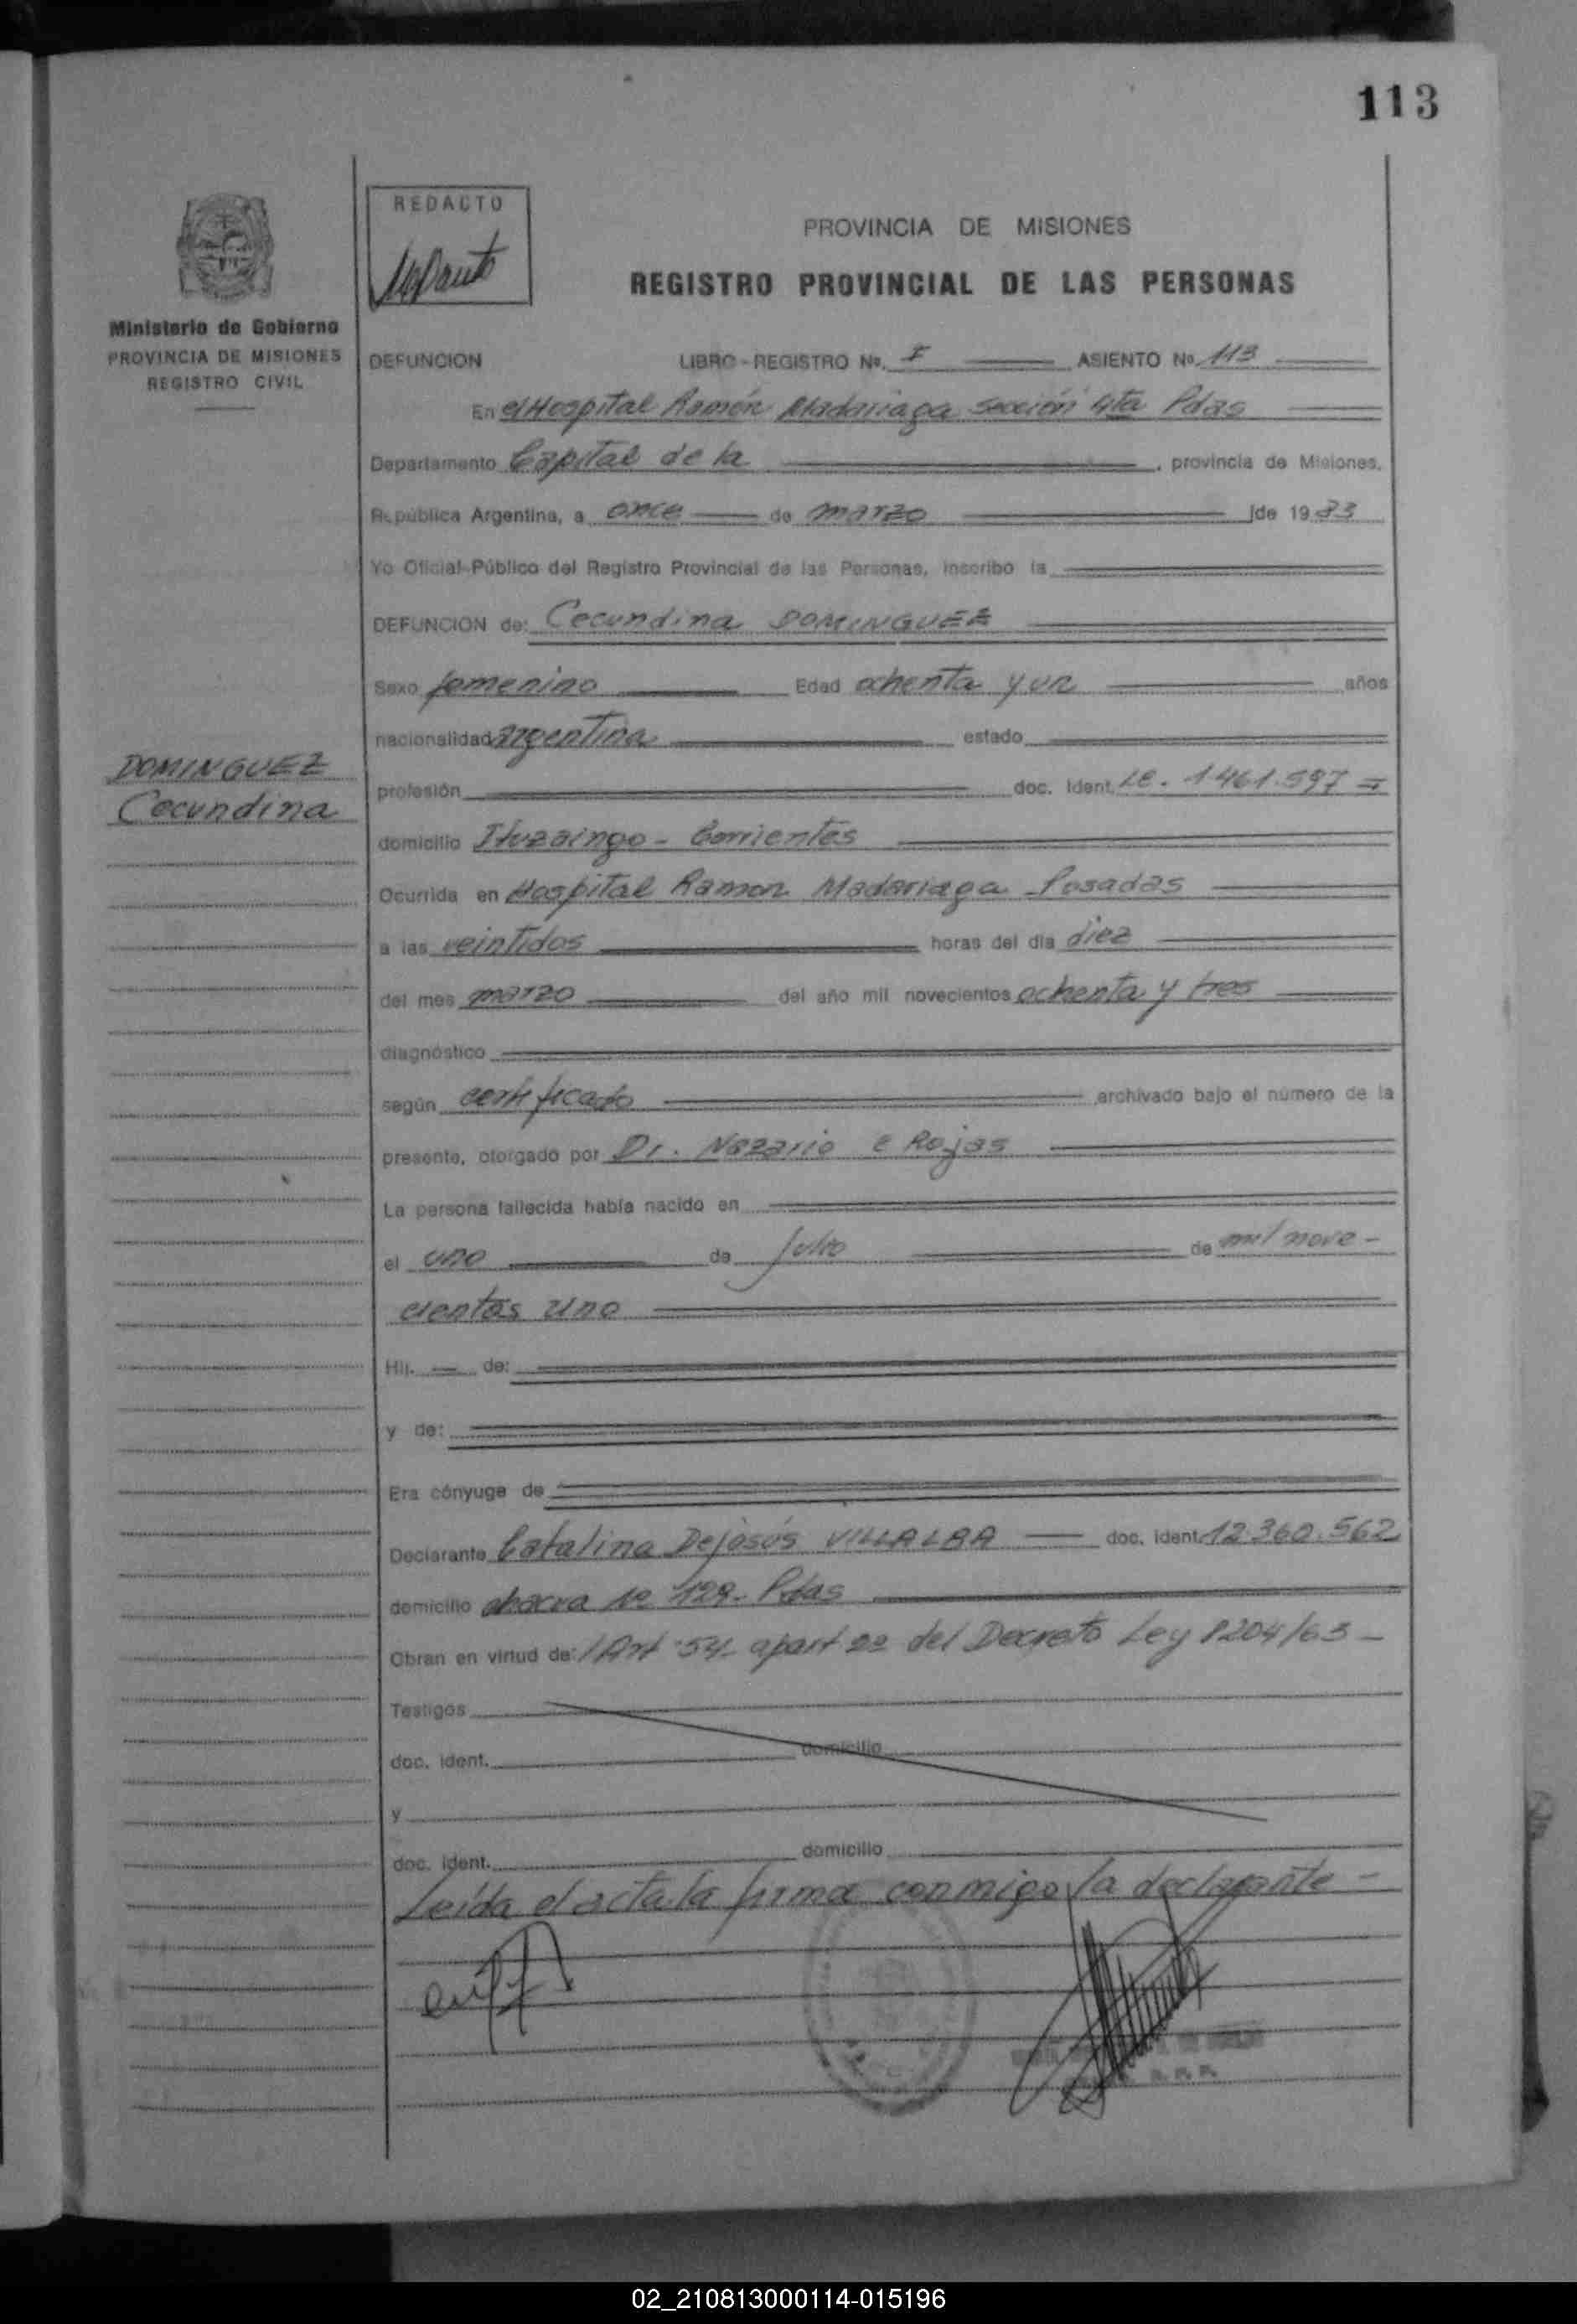 113
REDACTO
PROVINCIA DE MISIONES
REGISTRO PROVINCIAL DE LAS PERSONAS
Ministerio de Gobierno
PROVINCIA DE MISIONES
REGISTRO CIVIL
DEFUNCION LIBRO - REGISTRO No. I ASIENTO No. 113
En el Hospital Ramón Madariaga sección 4ta Pdas
Departamento Capital de la , provincia de Misiones,
República Argentina, a once de marzo de 1983
Yo Oficial Público del Registro Provincial de las Personas, inscribo la
DEFUNCION de: Cecundina DOMINGUEZ
Sexo femenino Edad ochenta y un años
nacionalidad argentina estado
DOMINGUEZ
Cecundina
profesión doc. Ident. LE. 1.461.597
domicilio Ituzaingo - Corrientes
Ocurrida en Hospital Ramon Madariaga Posadas
a las veintidos horas del día diez
del mes marzo del año mil novecientos ochenta y tres
diagnóstico
según certificado archivado bajo el número de la
presente, otorgado por Dr. Nazario E Rojas
La persona fallecida había nacido en
el uno de Julio de mil nove-
cientos uno
Hij. — de:
y de:
Era cónyuge de
Declarante Catalina Dejésós VILLALBA doc. ident. 12.360.562
domicilio chacra No 129 - Pdas
Obran en virtud de: Art 54 - apart 2º del Decreto Ley 8204/63 -
Testigos
doc. ident. domicilio
y
doc. ident. domicilio
Leída el acta la firma conmigo la declarante -
02_210813000114-015196